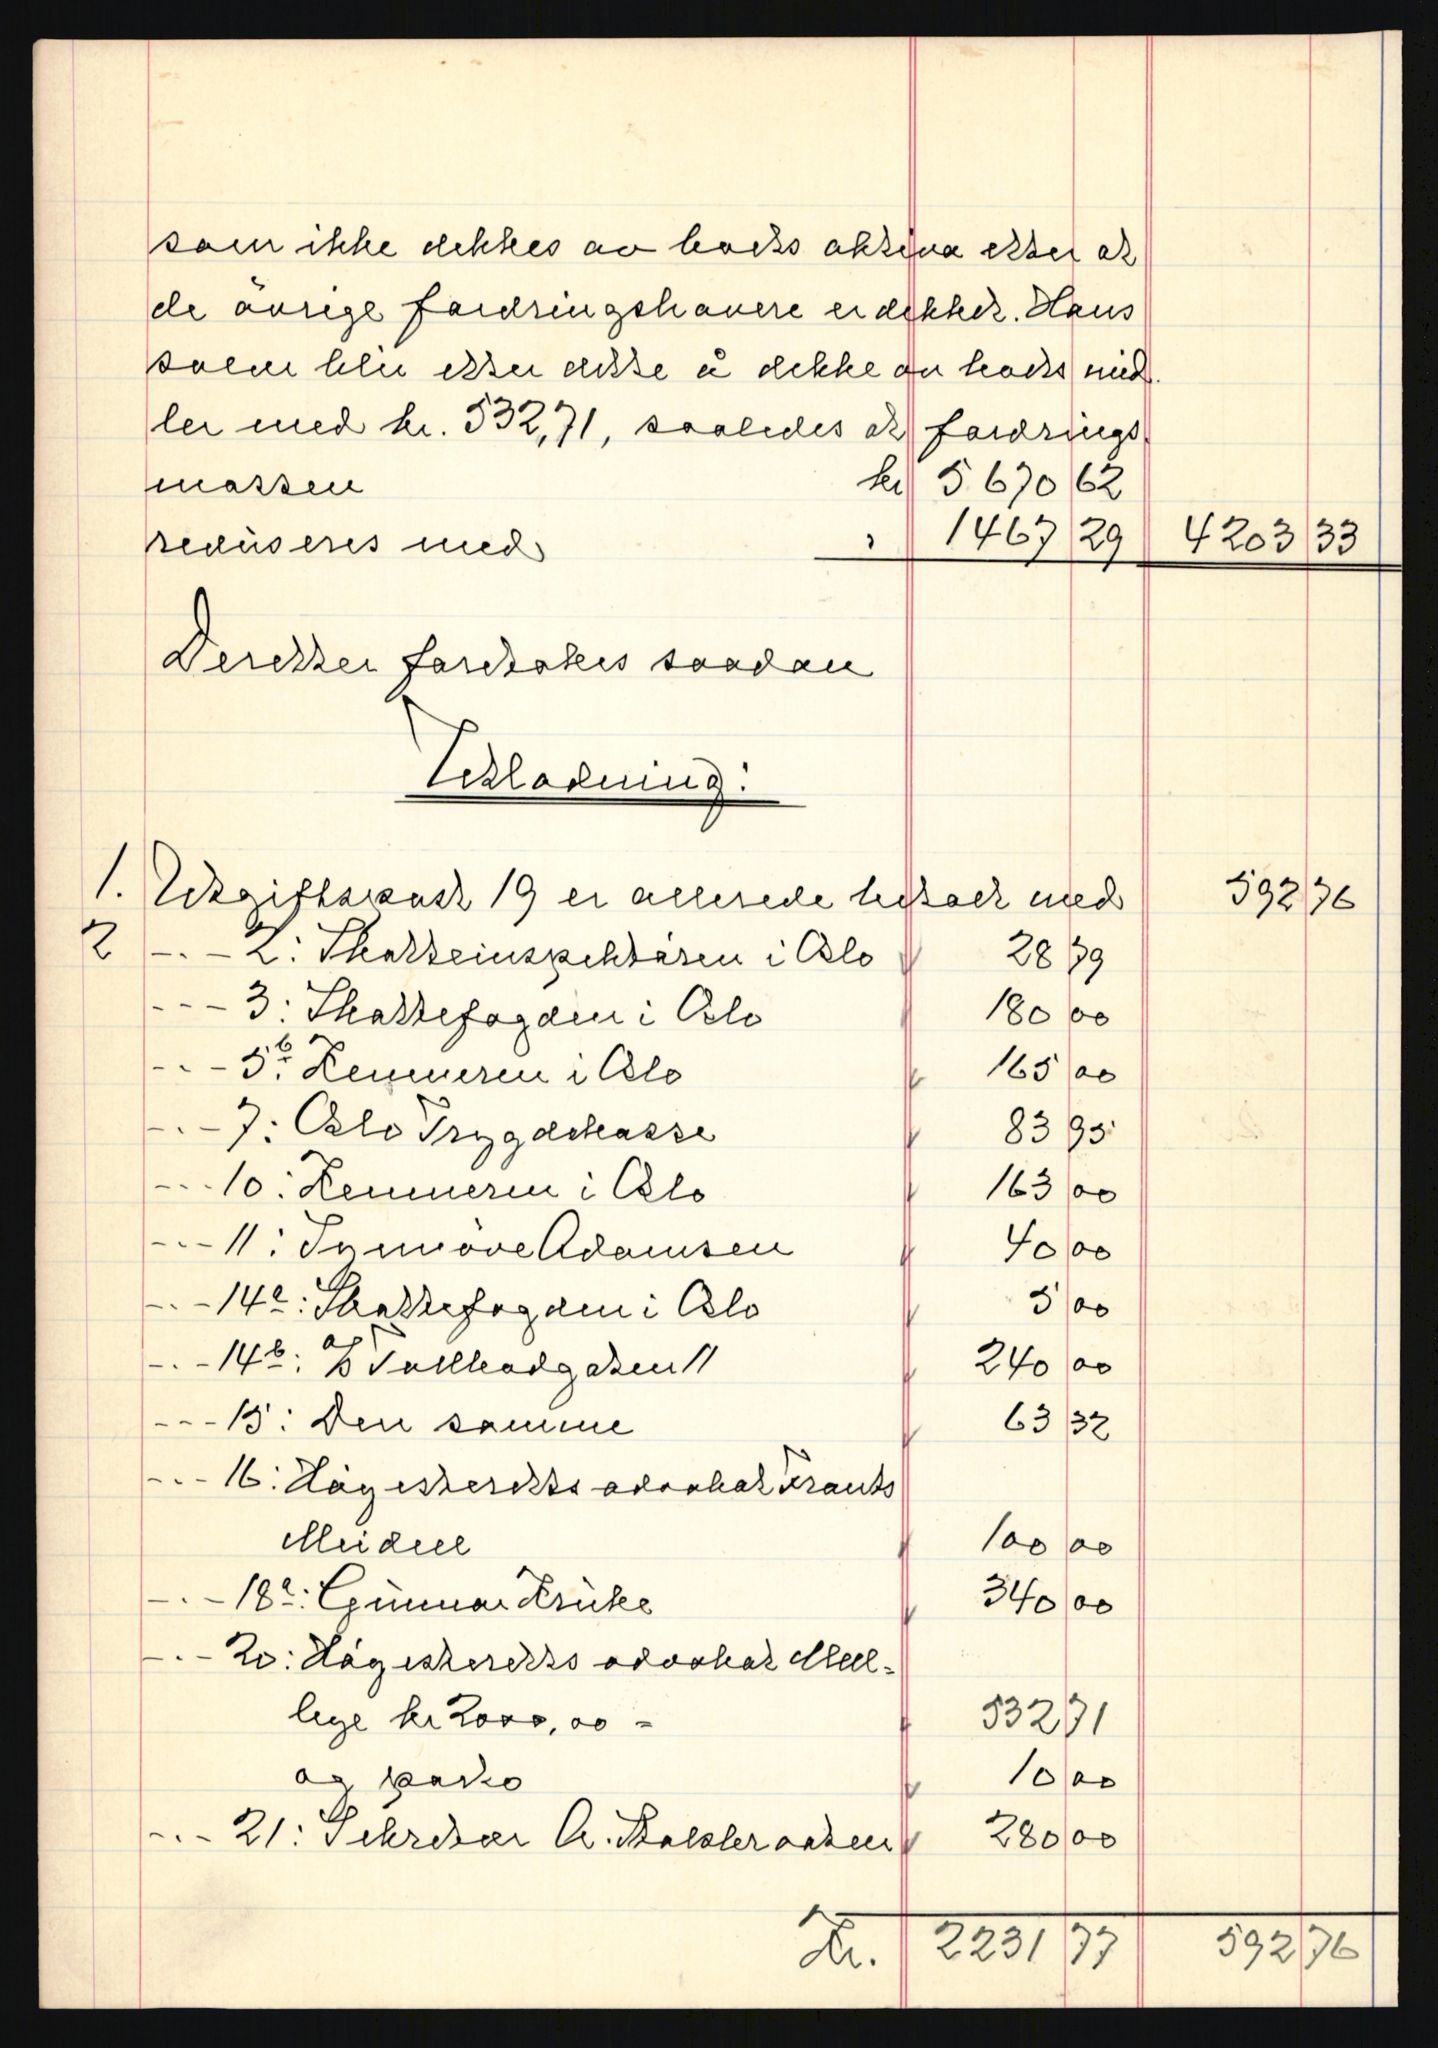 som ikke dekkes av boets aktiva etter at
de övrige fordringshavere er dekket. Hans
solær blir etter dette å dekke av boets mid-
ler med kr. 532,71, saaledes at fordrings-
massen kr 5 670 62
reduseres med " 1467 29 4203 33
Deretter foretokes saadan
Utlodning:
1. Utgiftspost 19 er allerede betalt med 592 76
2 -.- 2: Skatteinspektøren i Oslo " 28 79
--- 3: Skattefogden i Oslo " 180 00
-.- 5b: Kemneren i Oslo " 165 00
-.- 7: Oslo Trygdekasse " 83 95
--- 10: Kemneren i Oslo " 163 00
-.- 11: Synnöve Adamsen " 40 00
-.- 14a: Skattefogden i Oslo " 5 00
-.- 14b: A/S Tollbodgaten 11 " 240 00
--- 15: Den samme " 63 32
-.- 16: Höyesteretts advokat Frants
Meidell " 100 00
-.- 18a: Gunnar Krüke " 340 00
-.- 20: Höyesteretts advokat Mel-
lye kr 2000,00 - " 532 71
og porto " 10 00
-.- 21: Sekretær A. Skolsbraaten " 280 00
Kr. 2231 77 592 76